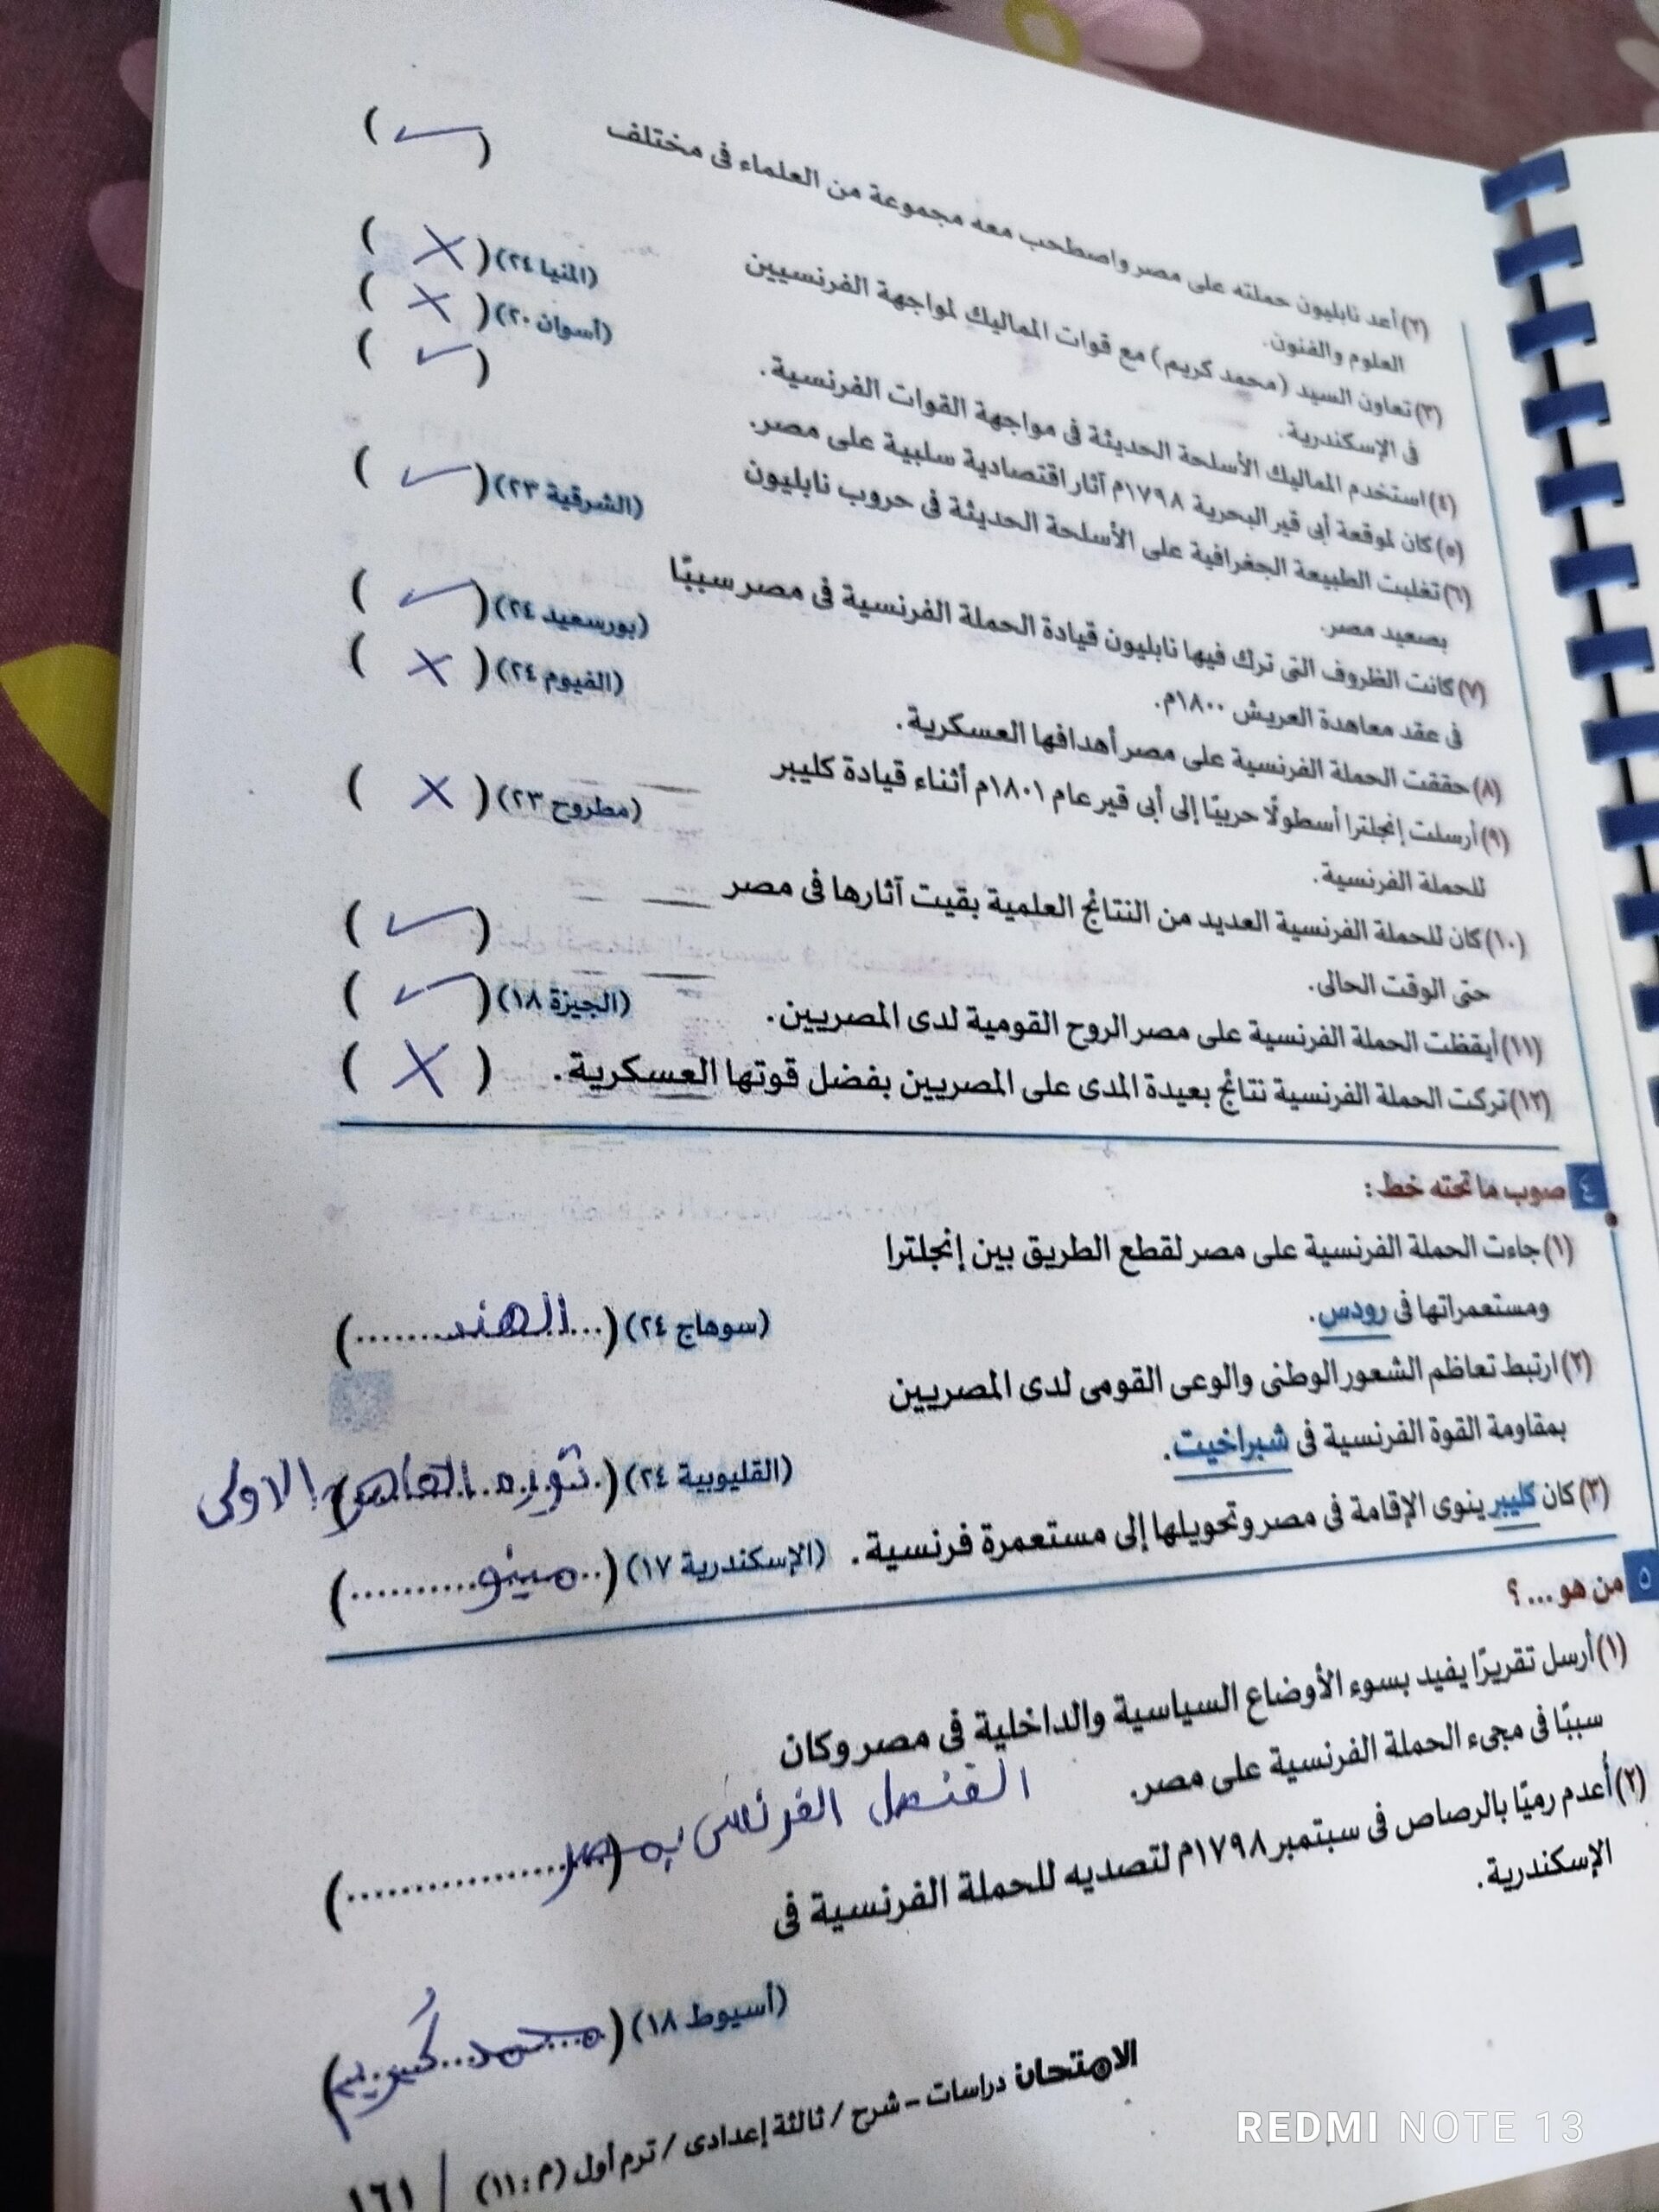 (٢) أعد نابليون حملته على مصر واصطحب معه مجموعة من العلماء فى مختلف
العلوم والفنون. (✓)
(٣) تعاون السيد (محمد كريم) مع قوات المماليك لمواجهة الفرنسيين
فى الإسكندرية. (المنيا ٢٤) (✗)
(٤) استخدم المماليك الأسلحة الحديثة فى مواجهة القوات الفرنسية. (أسوان ٢٠) (✗)
(٥) كان لموقعة أبى قير البحرية ١٧٩٨م آثار اقتصادية سلبية على مصر. (✓)
(٦) تغلبت الطبيعة الجغرافية على الأسلحة الحديثة فى حروب نابليون
بصعيد مصر. (الشرقية ٢٣) (✓)
(٧) كانت الظروف التى ترك فيها نابليون قيادة الحملة الفرنسية فى مصر سببًا
فى عقد معاهدة العريش ١٨٠٠م. (بورسعيد ٢٤) (✓)
(٨) حققت الحملة الفرنسية على مصر أهدافها العسكرية. (الفيوم ٢٤) (✗)
(٩) أرسلت إنجلترا أسطولًا حربيًا إلى أبى قير عام ١٨٠١م أثناء قيادة كليبر
للحملة الفرنسية. (مطروح ٢٣) (✗)
(١٠) كان للحملة الفرنسية العديد من النتائج العلمية بقيت آثارها فى مصر
حتى الوقت الحالى. (✓)
(١١) أيقظت الحملة الفرنسية على مصر الروح القومية لدى المصريين. (الجيزة ١٨) (✓)
(١٢) تركت الحملة الفرنسية نتائج بعيدة المدى على المصريين بفضل قوتها العسكرية. (✗)
٤ صوب ما تحته خط :
(١) جاءت الحملة الفرنسية على مصر لقطع الطريق بين إنجلترا
ومستعمراتها فى رودس. (سوهاج ٢٤) (الهند)
(٢) ارتبط تعاظم الشعور الوطنى والوعى القومى لدى المصريين
بمقاومة القوة الفرنسية فى شبراخيت. (القليوبية ٢٤) (ثوره القاهره الاولى)
(٣) كان كليبر ينوى الإقامة فى مصر وتحويلها إلى مستعمرة فرنسية. (الإسكندرية ١٧) (مينو)
٥ من هو ... ؟
(١) أرسل تقريرًا يفيد بسوء الأوضاع السياسية والداخلية فى مصر وكان
سببًا فى مجىء الحملة الفرنسية على مصر. (القنصل الفرنسى بمصر)
(٢) أعدم رميًا بالرصاص فى سبتمبر ١٧٩٨م لتصديه للحملة الفرنسية فى
الإسكندرية. (أسيوط ١٨) (محمد كُريم)
الامتحان دراسات - شرح / ثالثة إعدادى / ترم أول (م : ١١) / ١٦١
REDMI NOTE 13